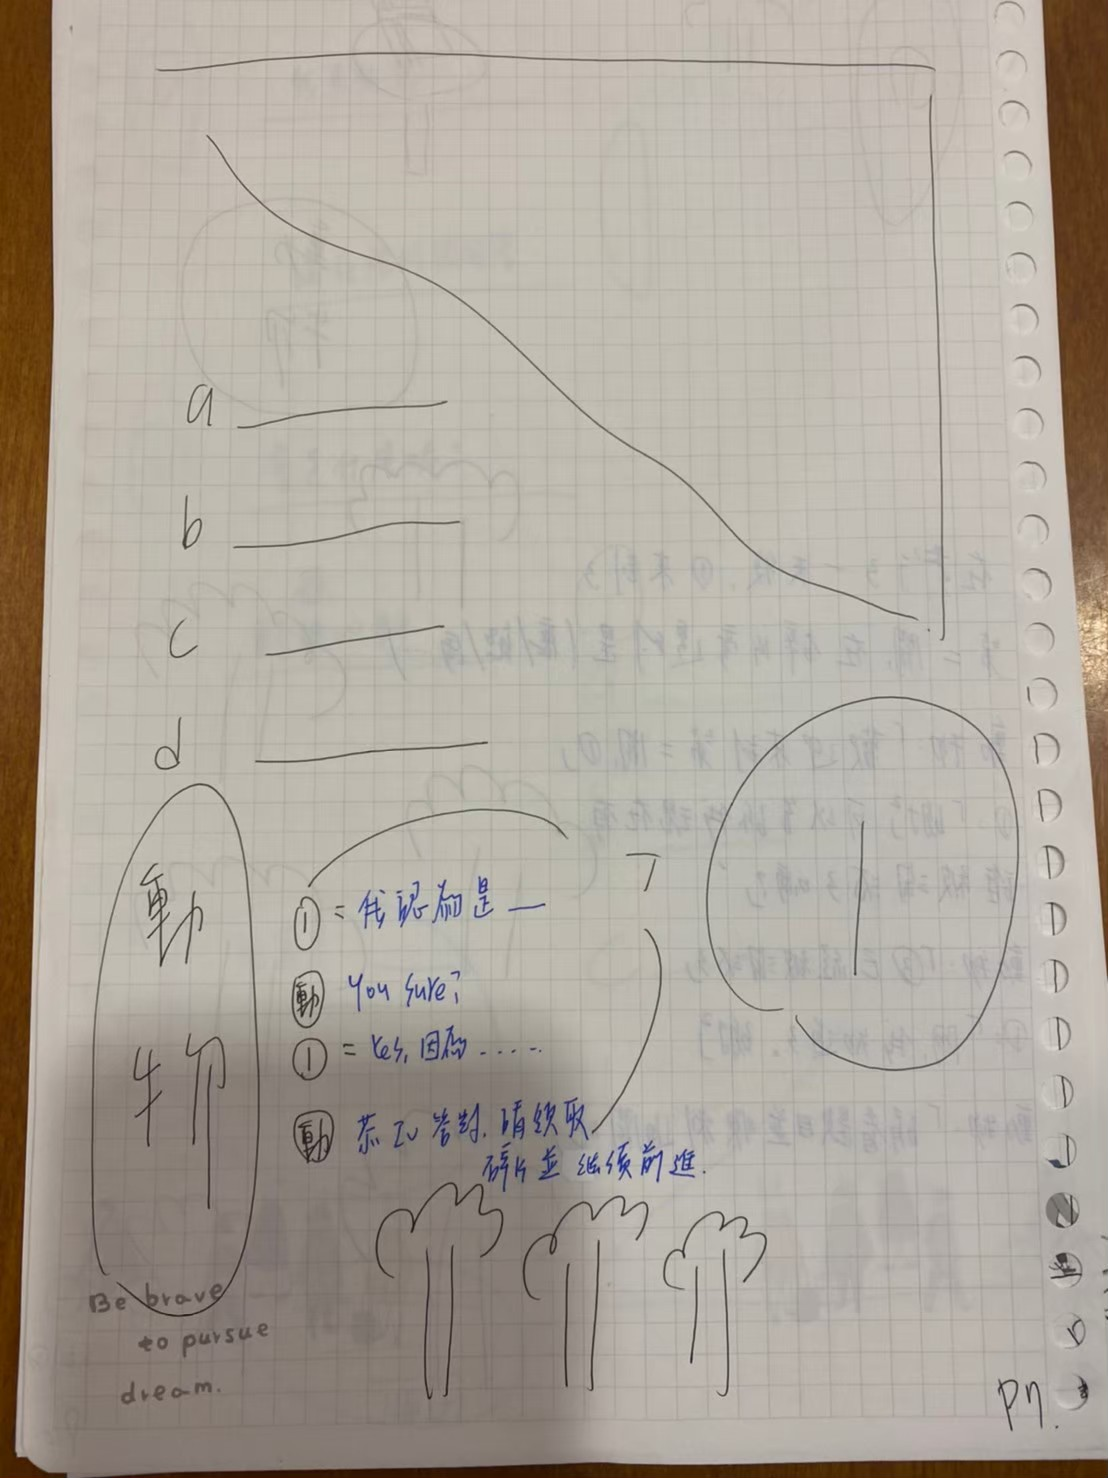 a
b
c
d
動
物
① = 我認為是 __
動 You sure?
① = Yes, 因為 ......
動 恭ㄒㄩ 答對. 請領取
碎片並继续前進.
1
Be brave
to pursue
dream.
P7.